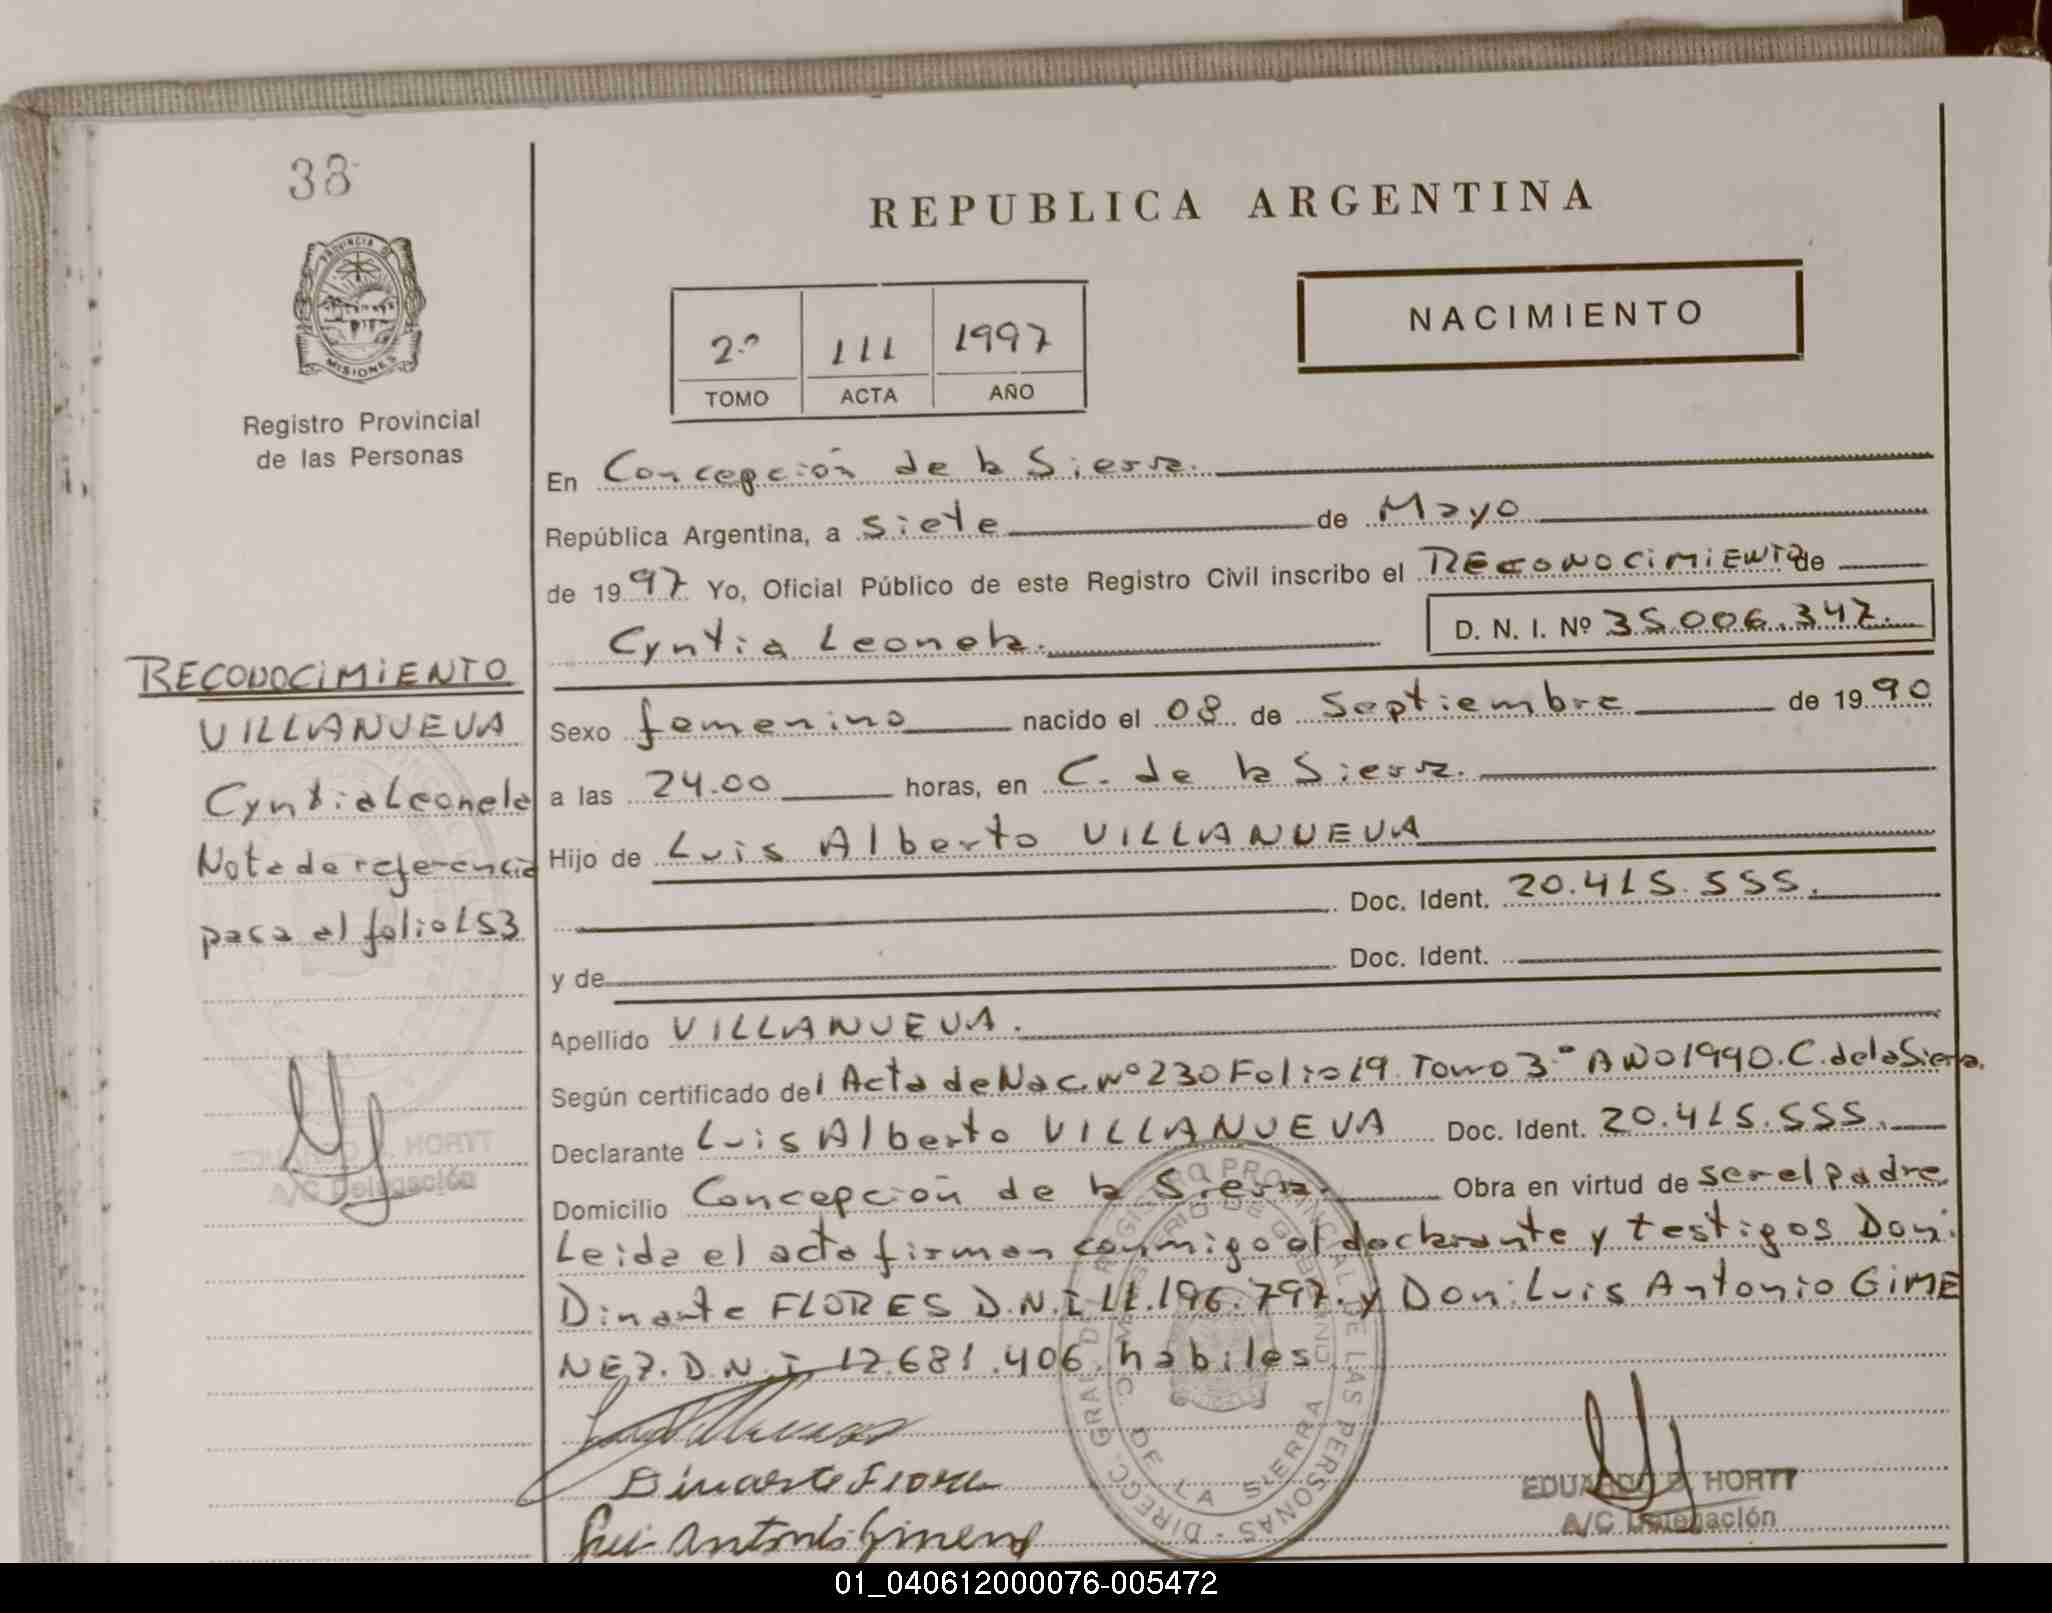 38
REPUBLICA ARGENTINA
PROVINCIA DE
MISIONES
Registro Provincial
de las Personas
2.º 111 1997
TOMO ACTA AÑO
NACIMIENTO
En Concepción de la Sierra.
República Argentina, a siete de Mayo
de 1997 Yo, Oficial Público de este Registro Civil inscribo el RECONOCIMIENTO de
Cyntia Leonela.
D. N. I. Nº 35.006.347.
Sexo femenino nacido el 08 de Septiembre de 1990
a las 24.00 horas, en C. de la Sierra.
Hijo de Luis Alberto VILLANUEVA
Doc. Ident. 20.415.555.
y de Doc. Ident.
Apellido VILLANUEVA.
Según certificado del Acta de Nac. nº 230 Folio 19 Tomo 3º AÑO 1990. C. de la Sierra.
Declarante Luis Alberto VILLANUEVA Doc. Ident. 20.415.555.
Domicilio Concepción de la Sierra. Obra en virtud de ser el padre
Leida el acta firman conmigo el declarante y testigos Don:
Dinarte FLORES D.N.I 11.196.797. y Don: Luis Antonio GIME
NEZ. D.N.I 12.681.406. habiles
Dinarte Flores
Luis Antonio Gimenez
EDUARDO HORTT
A/C Delegación
DIRECC. GRAL. DEL REGISTRO PROVINCIAL DE LAS PERSONAS
MINISTERIO DE GOBIERNO
C. DE LA SIERRA
RECONOCIMIENTO
VILLANUEVA
Cyntia Leonela
Nota de referencia
pasa al folio 153
EDUARDO HORTT
A/C Delegación
01_040612000076-005472